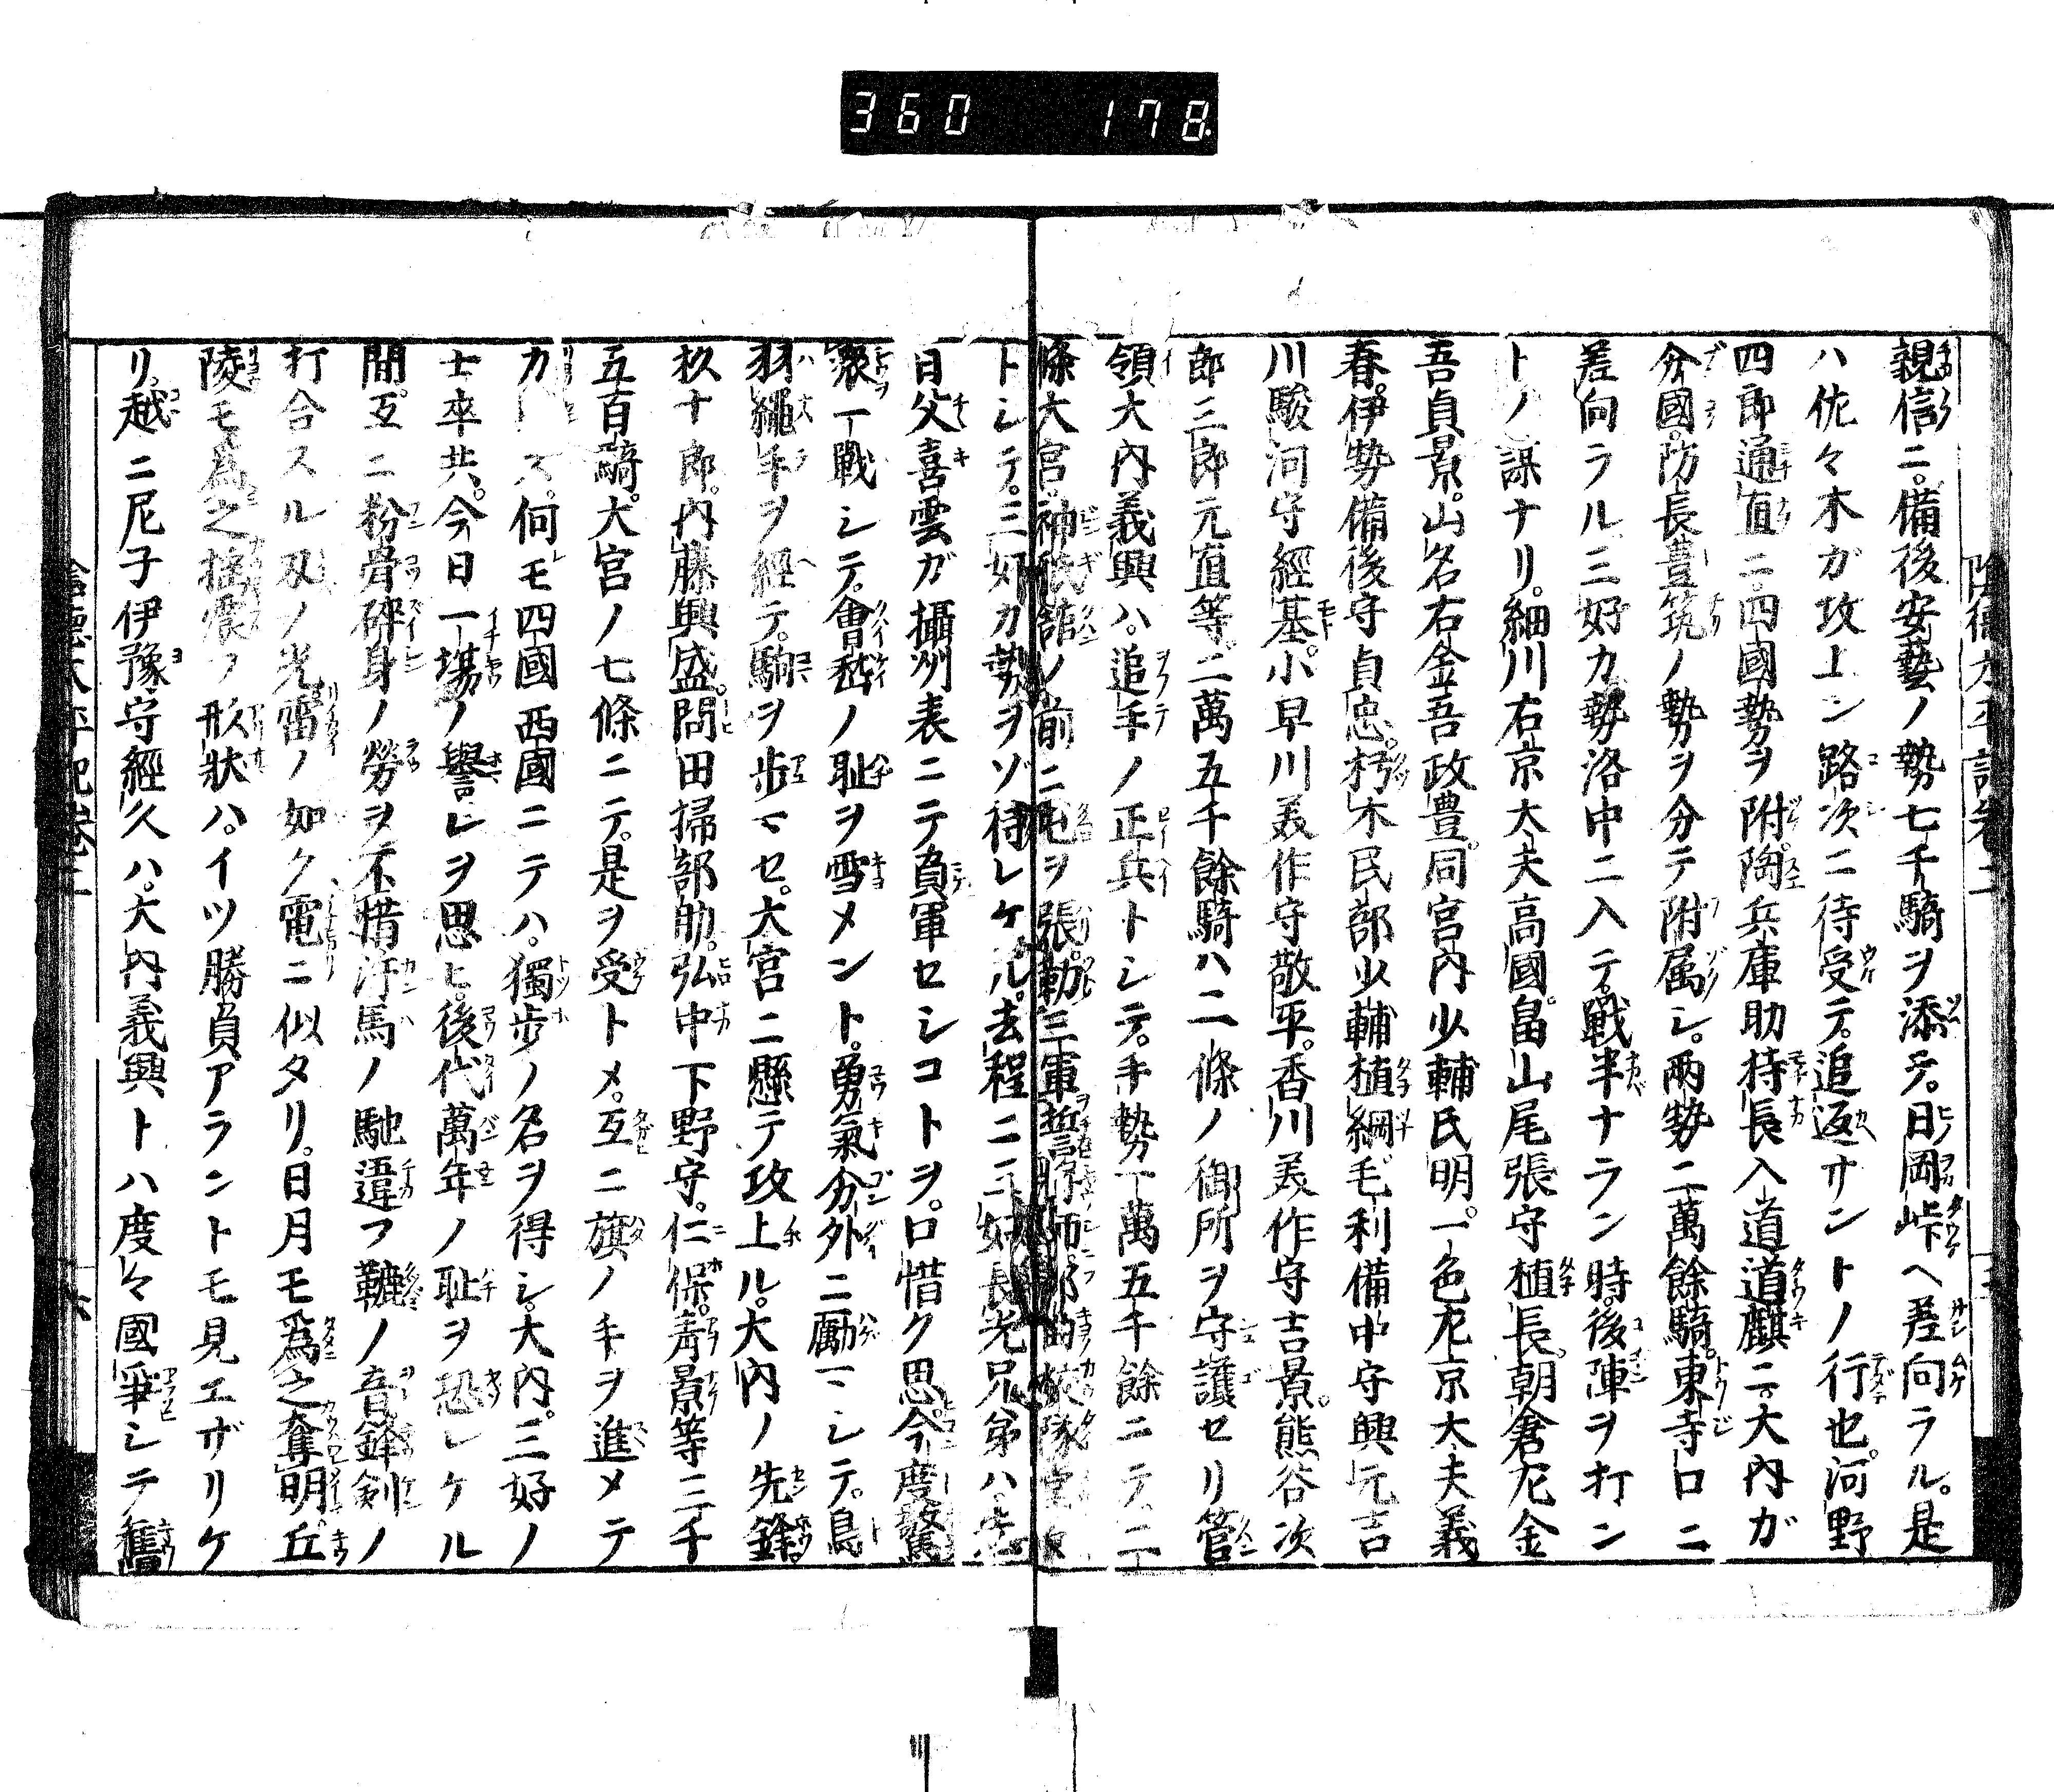 360 178
親信ニ。備後安藝ノ勢七千騎ヲ添テ。日岡峠ヘ差向ラル。是
ハ佐々木ガ攻上ン路次ニ待受テ。追返サントノ行也。河野
四郎通直ニ。四國勢ヲ附。陶兵庫助持長入道道麒ニ。大内ガ
分國。防長豊筑ノ勢ヲ分テ附属シ。両勢二萬餘騎。東寺口ニ
差向ラル三好カ勢洛中ニ入テ。戦半ナラン時。後陣ヲ打ン
トノ謀ナリ。細川右京大夫高國。畠山尾張守植長。朝倉左金
吾貞景。山名右金吾政豊。同宮内少輔氏明。一色左京大夫義
春。伊勢備後守貞忠。朽木民部少輔植綱。毛利備中守興元吉
川駿河守經基。小早川美作守敬平。香川美作守吉景。熊谷次
郎三郎元直等。二萬五千餘騎ハ二條ノ御所ヲ守護セリ管
領大内義興ハ。追手ノ正兵トシテ。手勢一萬五千餘ニテ。二
條大宮。神祇舘ノ前ニ屯ヲ張。勒三軍誓將師。部曲
トシテ。三好カ勢ヲゾ待レケル。去程ニ三好長光兄弟ハ
日父喜雲ガ攝州表ニテ負軍セシコトヲ。口惜ク思。今度驚
衆一戰シテ。會嵆ノ耻ヲ雪メント。勇氣分外ニ勵マシテ。鳥
羽繩手ヲ經テ。駒ヲ歩マセ。大宮ニ懸テ攻上ル。大内ノ先鋒。
杦十郎。内藤興盛。問田掃部助。弘中下野守。仁保。青景等三千
五百騎。大宮ノ七條ニテ。是ヲ受トメ。互ニ旗ノ手ヲ進メテ
カ ス。何モ四國西國ニテハ。獨歩ノ名ヲ得シ。大内。三好ノ
士卒共。今日一塲ノ譽レヲ思ヒ。後代萬年ノ耻ヲ恐レケル
間。互ニ粉骨碎身ノ勞ヲ不惜汗馬ノ馳違フ轆ノ音鋒剣ノ
打合スル刄ノ光雷ノ如ク電ニ似タリ。日月モ爲之奪明。丘
陵モ爲之搖震フ形状ハ。イツ勝負アラントモ見エザリケ
リ。越ニ尼子伊豫守經久ハ。大内義興トハ度々國爭シテ舊